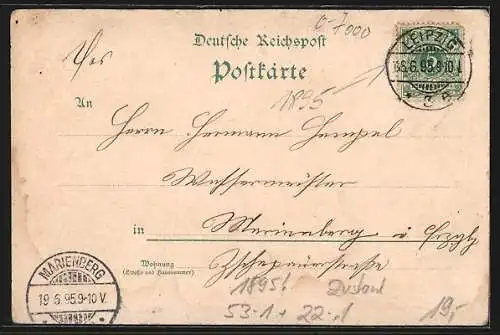 o-7000
Deutsche Reichspost
Postkarte
LEIPZIG
.6.95.9-10 V.
1895
An
Herrn Hermann Hempel
Wassermeister
in Marienberg i Erzgb
Wohnung
(Straße und Hausnummer)
Zschopauerstraße
MARIENBERG
19 6 95.9-10 V.
1895!
53.1 + 22-1
19,-